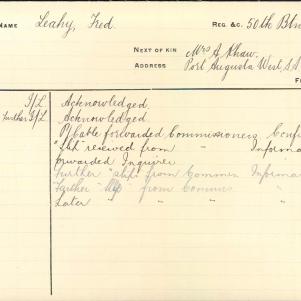 NAME Leahy, Fred. REG. &C. 50th Btn
NEXT OF KIN Mrs A. Shaw.
ADDRESS Port Augusta West, S.A
I/L Acknowledged.
Further I/L Acknowledged
forwarded Commissioners, Conf
received from Informa
forwarded Inquirer
Further "slip" from Common Informa
Further from Commrs "
Later " " "